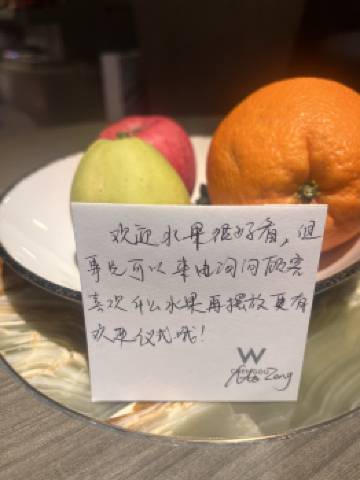 欢迎水果很好看，但
事先可以来电询问顾客
喜欢什么水果再摆放更有
欢迎仪式哦！
W
CHENGDU
Zeng